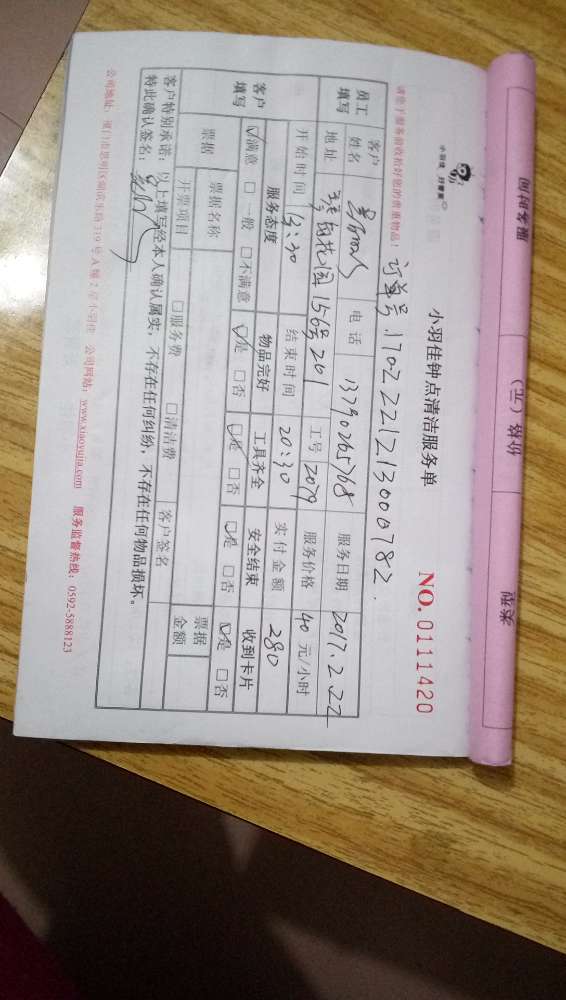 小羽佳 好管家
小羽佳钟点清洁服务单
NO. 0111420
请您于服务前收拾好您的贵重物品!
订单号 170222121213000782.
员工填写
客户姓名 电话 13790265768 服务日期 2017.2.22
地址 花园156号201 工号 2079 服务价格 40 元/小时
开始时间 13:30 结束时间 20:30 实付金额 280
客户填写
服务态度 物品完好 工具齐全 安全结束 收到卡片
☑满意 □一般 □不满意 ☑是 □否 ☑是 □否 ☑是 □否 ☑是 □否
票据 票据名称 票据金额
开票项目 □服务费 □清洁费 客户签名
客户特别承诺:以上填写经本人确认属实,不存在任何纠纷,不存在任何物品损坏。
特此确认签名:
公司地址:厦门市思明区湖滨东路319号A幢2层小羽佳 公司网站:www.xiaoyujia.com 服务监督热线:0592-5888123